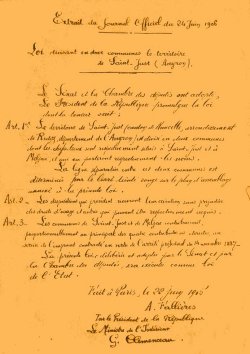 Extrait du Journal Officiel du 24 Juin 1906
Loi divisant en deux communes le territoire
de Saint-Just (Aveyron).
Le Sénat et la Chambre des députés ont adopté,
Le Président de la République promulgue la loi
dont la teneur suit :
Art. 1er Le territoire de Saint-Just, arrondissement
de Rodez, département de l'Aveyron, est divisé en deux communes
dont les chefs-lieux sont respectivement fixés à Saint-Just et à
Meljac, et qui en porteront respectivement les noms.
La ligne séparative entre ces deux communes est
déterminée par le liseré teinté rouge sur le plan d'assemblage
annexé à la présente loi.
Art. 2 Les dispositions qui précèdent auront lieu sans préjudice
des droits d'usage et autres qui peuvent être respectivement acquis.
Art. 3 Les communes de Saint-Just et de Meljac contribueront,
proportionnellement au principal des quatre contributions directes, au
service de l'emprunt contracté en vertu de l'arrêté préfectoral du
La présente loi, délibérée et adoptée par le Sénat et par
la Chambre des députés sera exécutée comme loi
de l'État.
Fait à Paris, le 22 juin
A. Fallières
Par le Président de la République
Le Ministre de l'Intérieur
G. Clemenceau